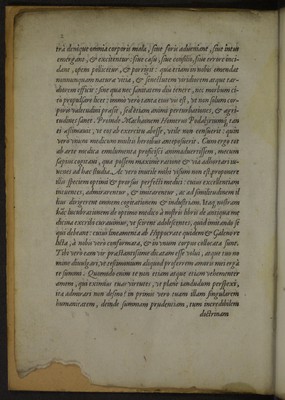 tra denique omnia corporis mala, siue foris adueniant, siue intus
emergant, & excitentur: siue casu, siue consilio, siue certe inci-
dant, opem pollicetur, & porrigit: quia etiam in nobis emendat
nonnunquam naturæ vitia, & senectutem viridiorem atque tar-
diorem efficit: sine qua nec sanitatem diu tenere, nec morbum ci-
to propulsare licet: immo vero tanta eius vis est, vt non solum cor-
pori valetudinem præstet, sed etiam animi perturbationes, & ægri-
tudines sanet. Proinde Machaonem Homerus Podalyriumque tan-
ti æstimauit, vt eos ab exercitu abesse, vtile non censuerit: quin
vero vnum medicum multis heroibus anteposuerit. Cum ergo tot
ab arte medica emolumenta proficisci animaduertissem, mecum
sæpius cogitaui, qua possem maxime ratione & via adhortari iu-
uenes ad hæc studia. Ac vero inutile mihi visum non est proponere
illis speciem optimi & prorsus perfecti medici: cuius excellentiam
intuentes, admirarentur, & imitarentur, ac ad similitudinem il-
lius dirigerent omnem cogitationem & industriam. Itaque vestram
hac lucubratione de optimo medico à nostris libris de antiqua me
dicina excribi curauimus, vt scirent adolescentes, quid imitandi si-
qui debeant: cuius lineamenta ab Hippocrate quidem & Galeno re
licta, à nobis vero conformata, & in vnum corpus collocata sunt.
Tibi vero eam vir præstantissime dicatam esse volui, atque tuo no
mine diuulgare, vt testimonium aliquod præferrem amoris mei erga
te summi. Quemadmodum te non etiam atque etiam vehementer
amem, qui eximias tuas virtutes, vt plane iamdudum perspexi,
ita admirari non desino? in primis vero tuam illam singularem
humanitatem, deinde summam prudentiam, tum incredibilem
doctrinam